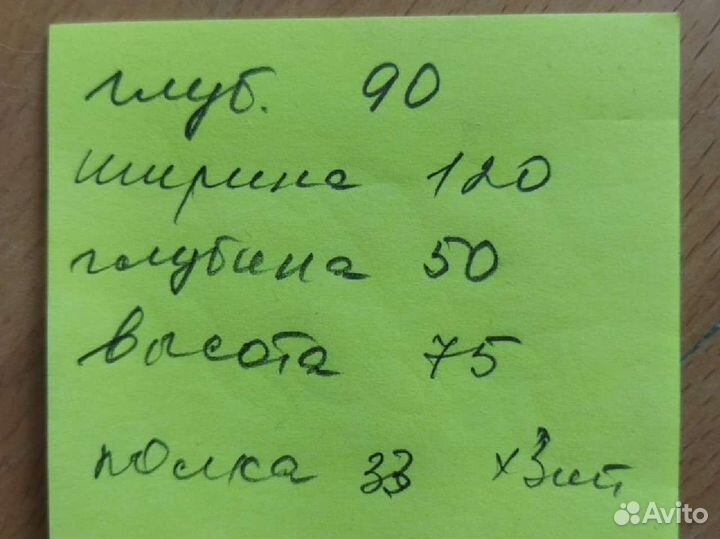 глуб. 90
ширина 120
глубина 50
высота 75
полка 33 х3шт
Avito